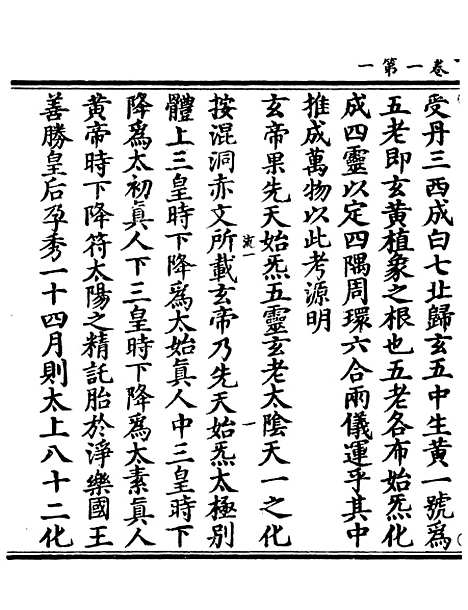 卷一第一
受丹三西成白七北歸玄五中生黃一號爲
五老即玄黃植象之根也五老各布始炁化
成四靈以定四隅周環六合兩儀運乎其中
推成萬物以此考源明
玄帝果先天始炁五靈玄老太陰天一之化
按混洞赤文所載玄帝乃先天始炁太極別
體上三皇時下降爲太始眞人中三皇時下
降爲太初眞人下三皇時下降爲太素眞人
黃帝時下降符太陽之精託胎於淨樂國王
善勝皇后孕秀一十四月則太上八十二化